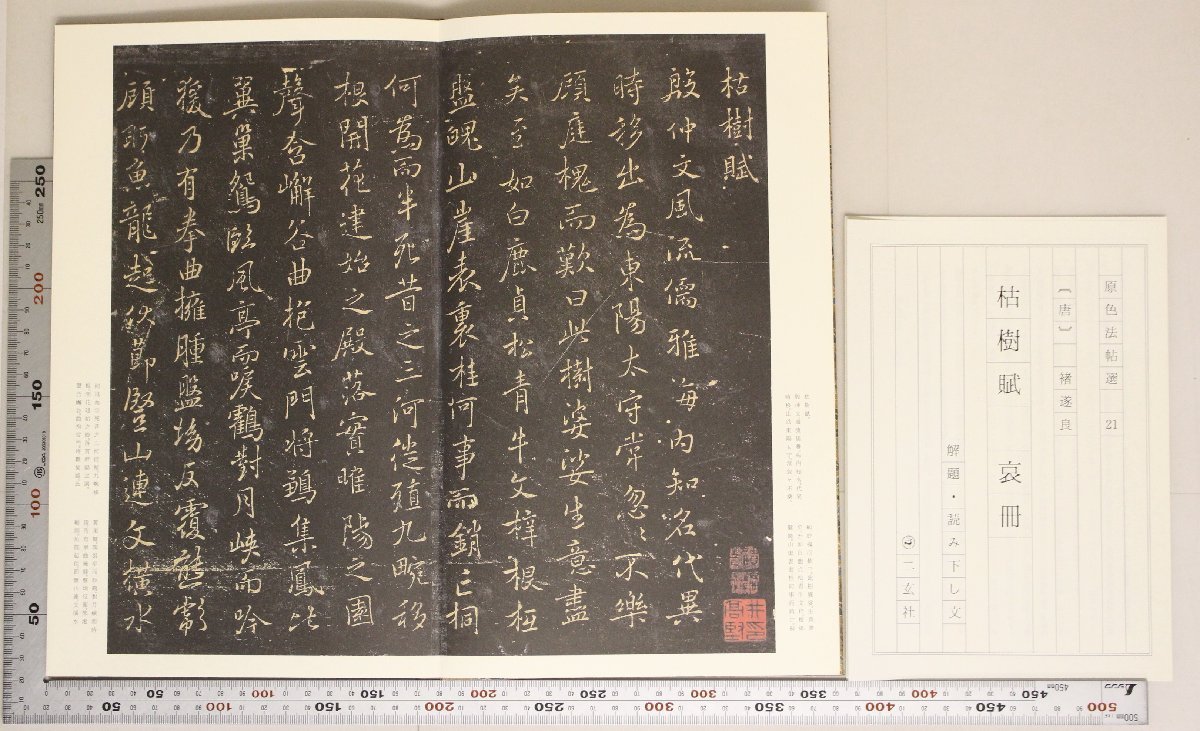 枯樹賦
殷仲文風流儒雅海内知名代異
時移出為東陽太守常忽〻不樂
顧庭槐而歎曰此樹婆娑生意盡
矣至如白鹿貞松青牛文梓根柢
盤魄山崖表裏桂何事而銷亡桐
何為而半死昔之三河徙殖九畹移
根開花建始之殿落實睢陽之園
聲含嶰谷曲抱雲門将鶵集鳳比
翼巢鴛臨風亭而唳鶴對月峡而吟
猨乃有拳曲擁腫盤坳反覆熊彪
顧盼魚龍起伏節竪山連文横水
原色法帖選 21
〔唐〕 褚遂良
枯樹賦 哀冊
解題・読み下し文
二玄社